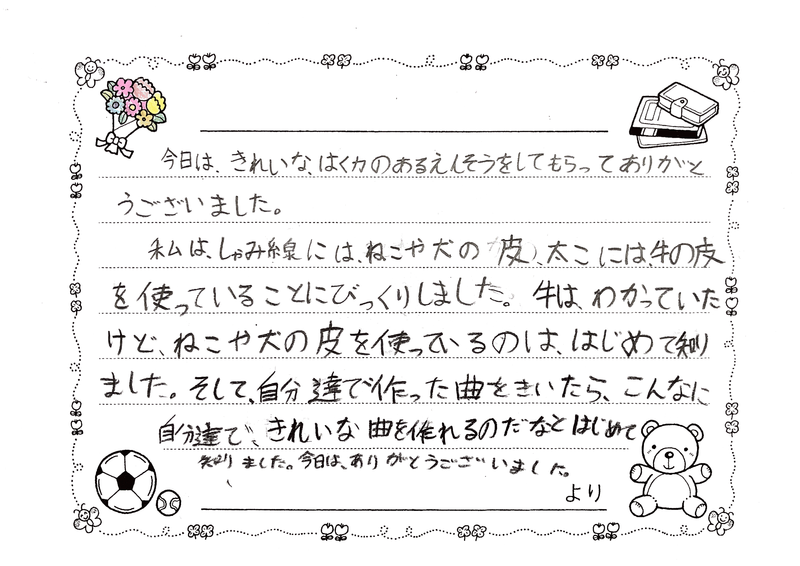 今日は、きれいな、はく力のあるえんそうをしてもらってありがと
うございました。
私は、しゃみ線には、ねこや犬の皮、太こには、牛の皮
を使っていることにびっくりしました。牛は、わかっていた
けど、ねこや犬の皮を使っているのは、はじめて知り
ました。そして、自分達で作った曲をきいたら、こんなに
自分達で、きれいな曲を作れるのだなとはじめて
知りました。今日は、ありがとうございました。
より